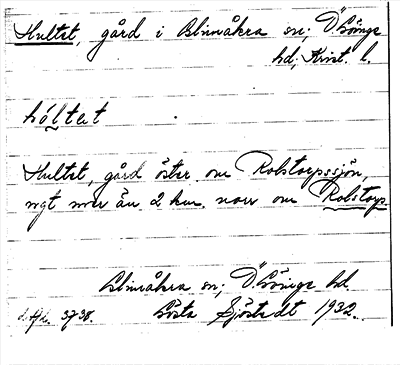 Hultet, gård i Glimåkra sn; Ö Göinge
hd; Krist. l.
hóltet
Hultet, gård öster om Rolstorpssjön,
ngt mer än 2 km. norr om Rolstorp.
Glimåkra sn; Ö Göinge hd.
3738. Gösta Sjöstedt 1932.